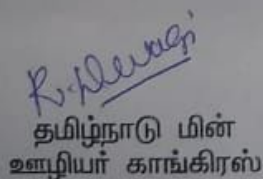 தமிழ்நாடு மின்
ஊழியர் காங்கிரஸ்